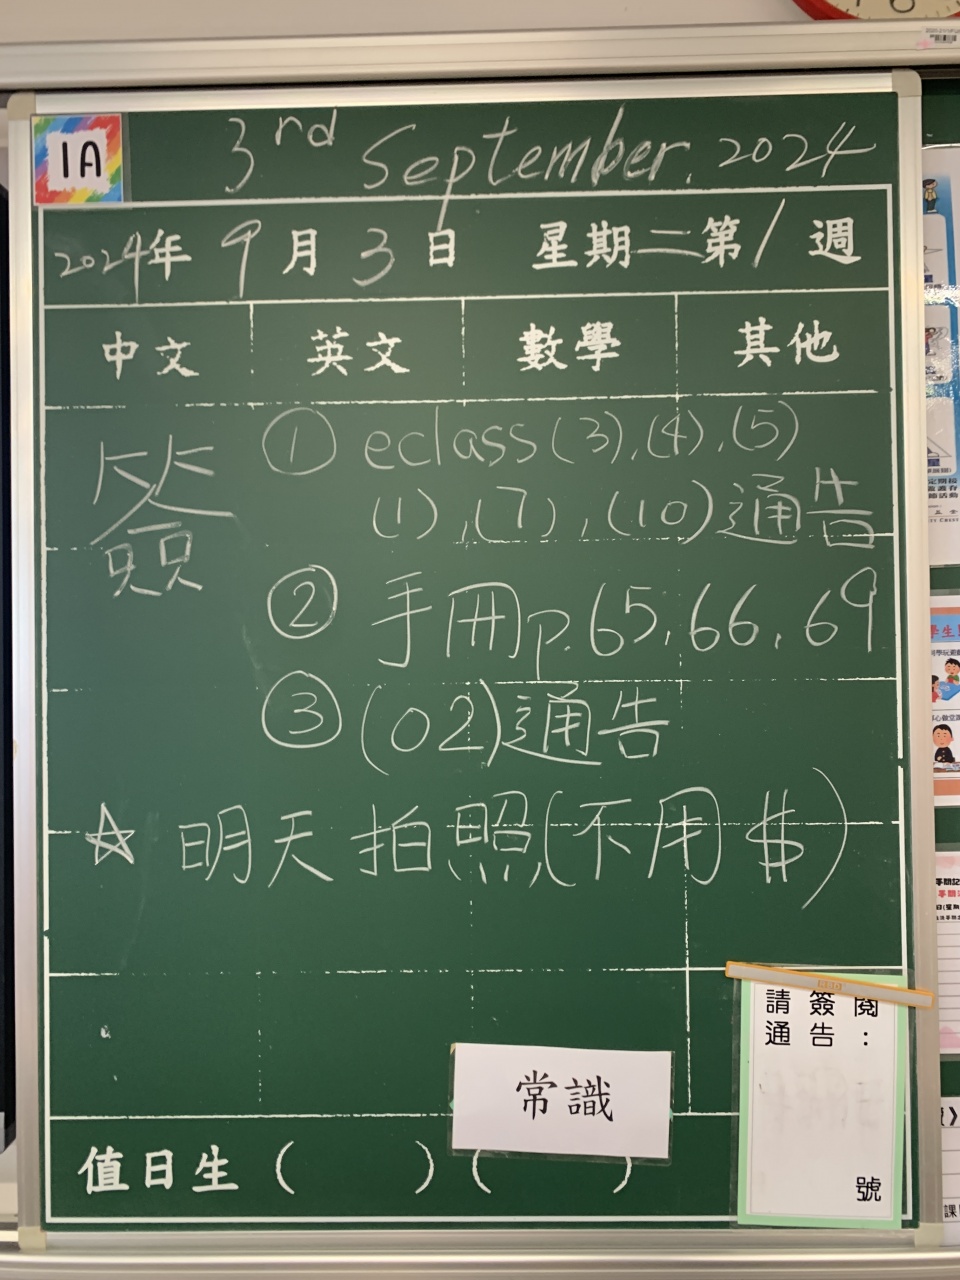 1A
3rd September. 2024
2024年 9月 3日 星期二 第1週
中文 英文 數學 其他
簽 ① eclass (3), (4), (5)
(1), (7), (10) 通告
② 手冊 p. 65, 66, 69
③ (02) 通告
☆ 明天拍照(不用$)
請簽閱
通告：
號
常識
值日生 ( ) ( )